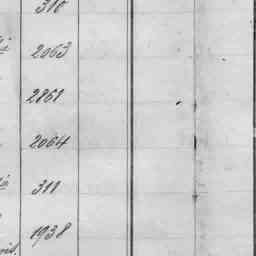 310
2063
2861
2064
311
1938